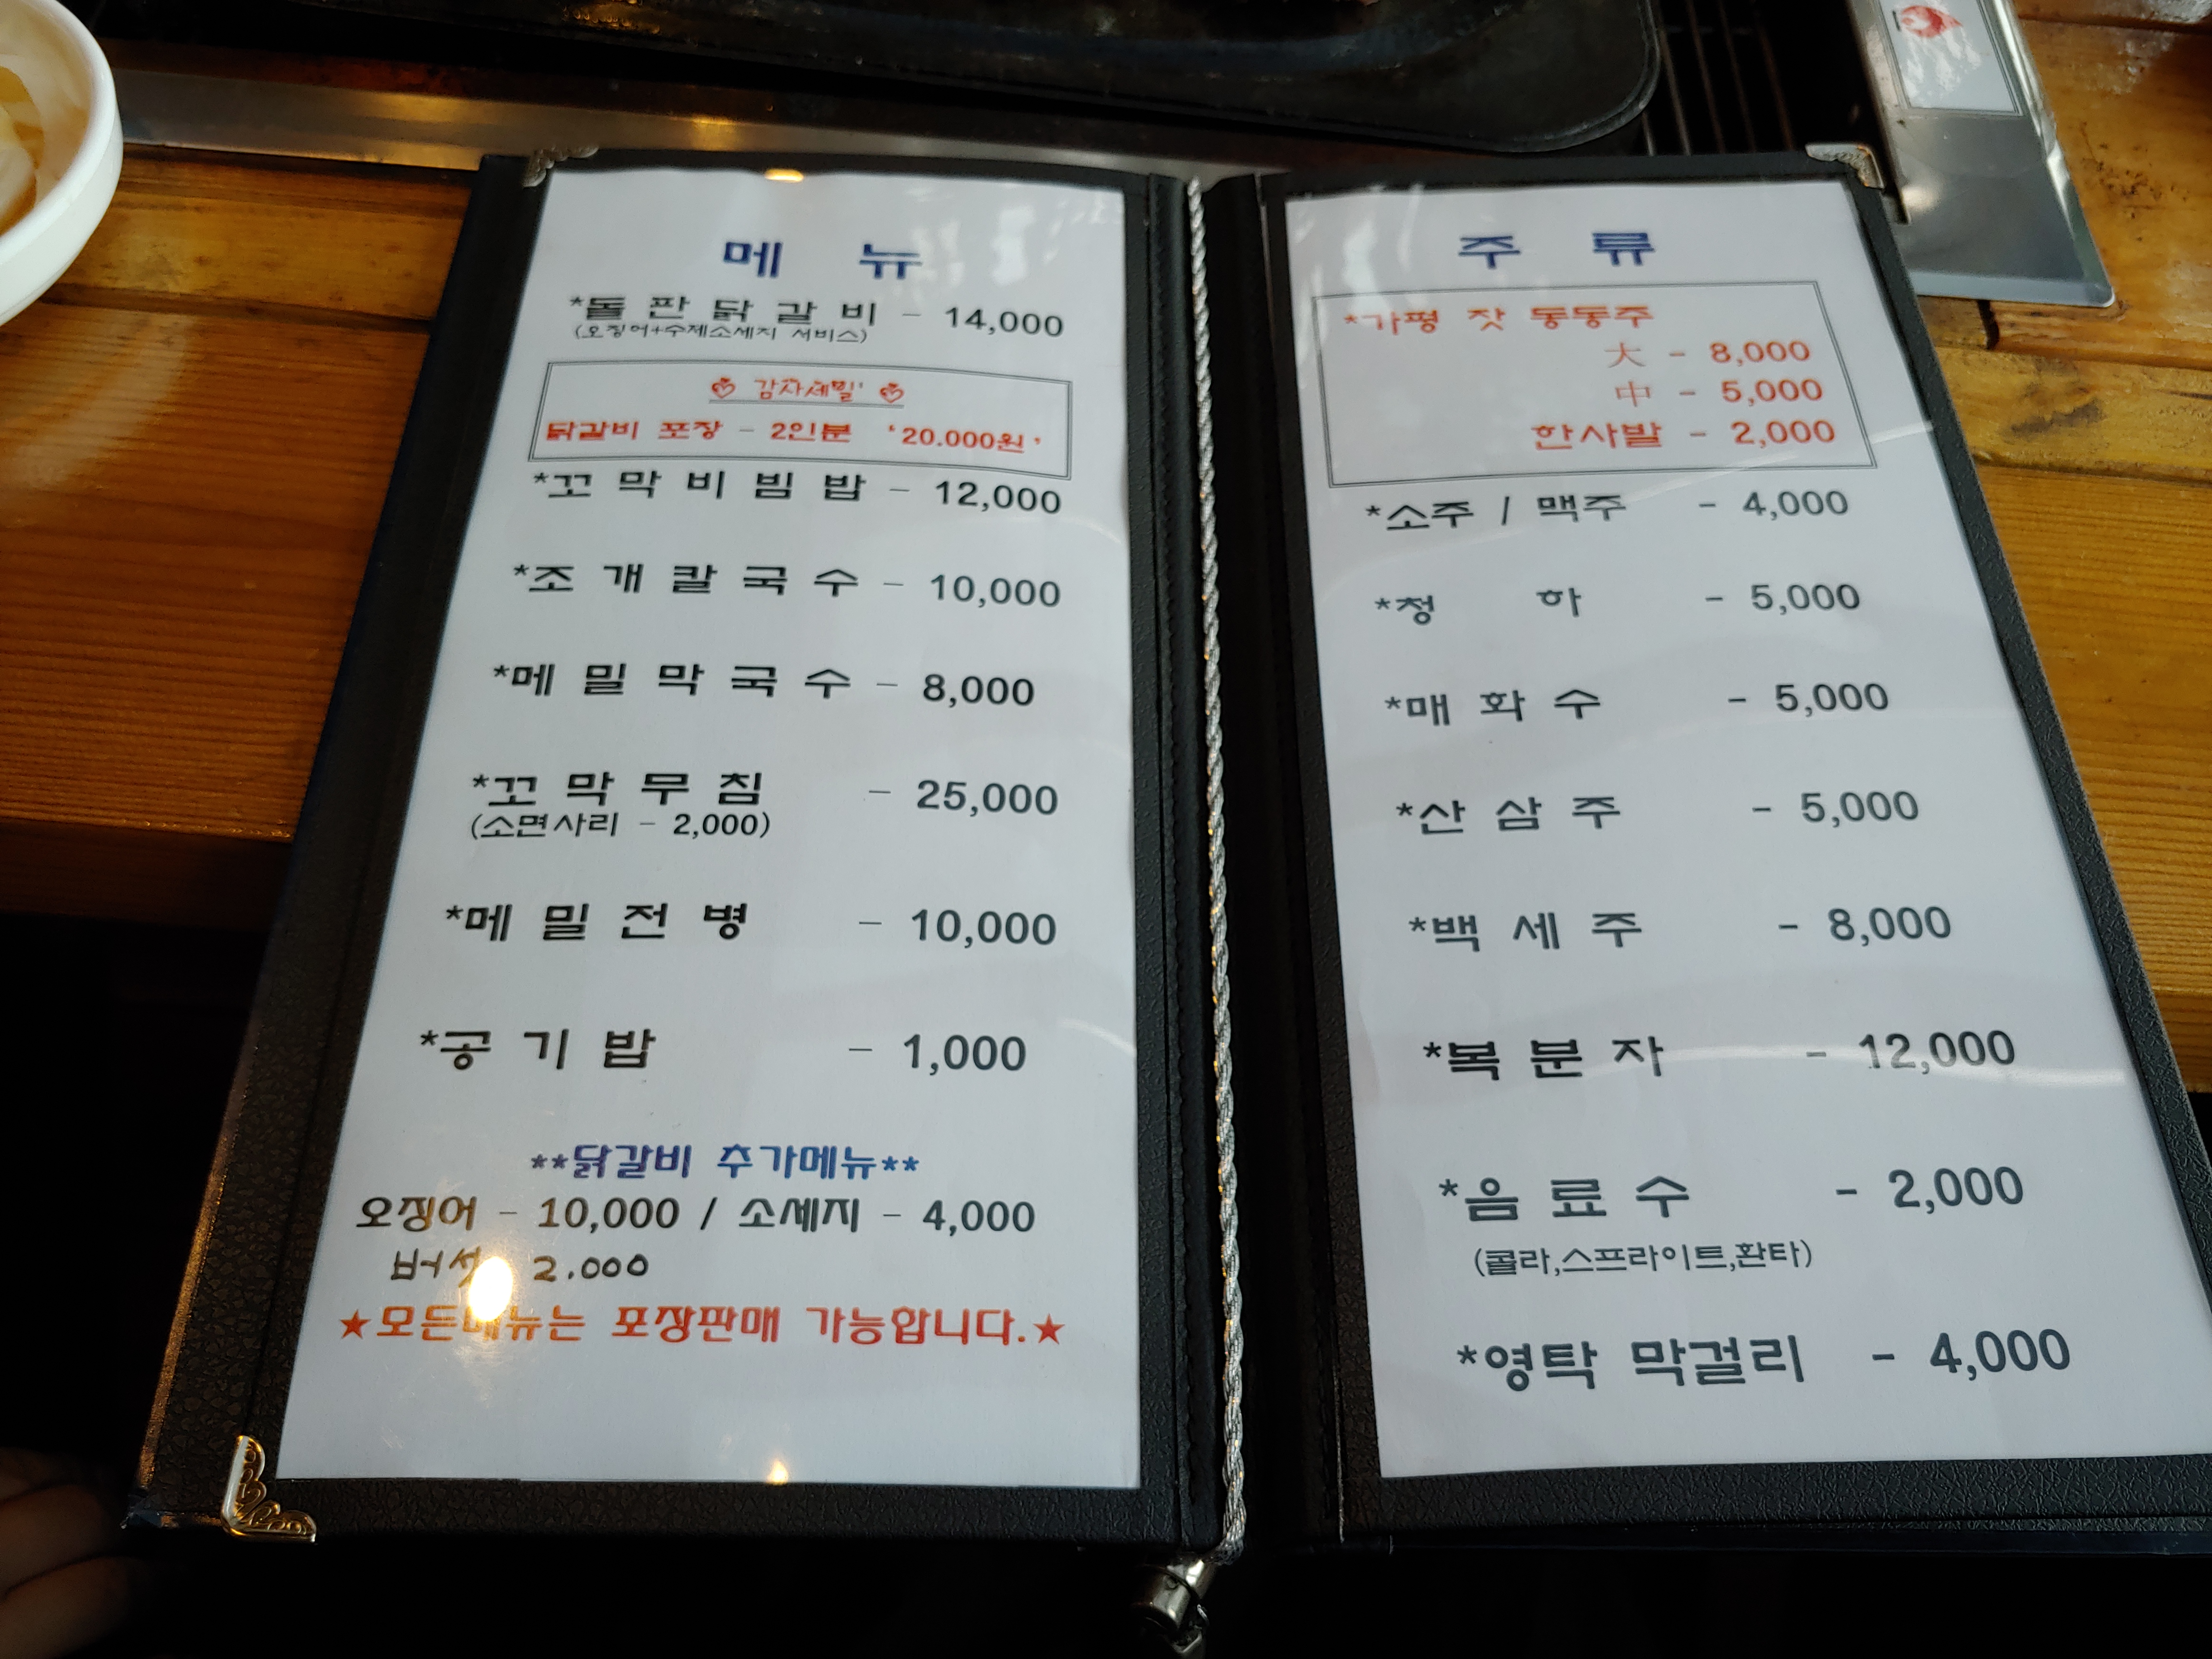 메 뉴
*돌 판 닭 갈 비 - 14,000
(오징어+수제소세지 서비스)
감자세밀'
닭갈비 포장 - 2인분 '20.000원'
*꼬 막 비 빔 밥 - 12,000
*조 개 칼 국 수 - 10,000
*메 밀 막 국 수 - 8,000
*꼬 막 무 침 - 25,000
(소면사리 - 2,000)
*메 밀 전 병 - 10,000
*공 기 밥 - 1,000
**닭갈비 추가메뉴**
오징어 - 10,000 / 소세지 - 4,000
버섯 2.000
★모든메뉴는 포장판매 가능합니다.★
주 류
*가평 잣 동동주
大 - 8,000
中 - 5,000
한사발 - 2,000
*소주 / 맥주 - 4,000
*청 하 - 5,000
*매 화 수 - 5,000
*산 삼 주 - 5,000
*백 세 주 - 8,000
*복 분 자 - 12,000
*음 료 수 - 2,000
(콜라,스프라이트,환타)
*영탁 막걸리 - 4,000